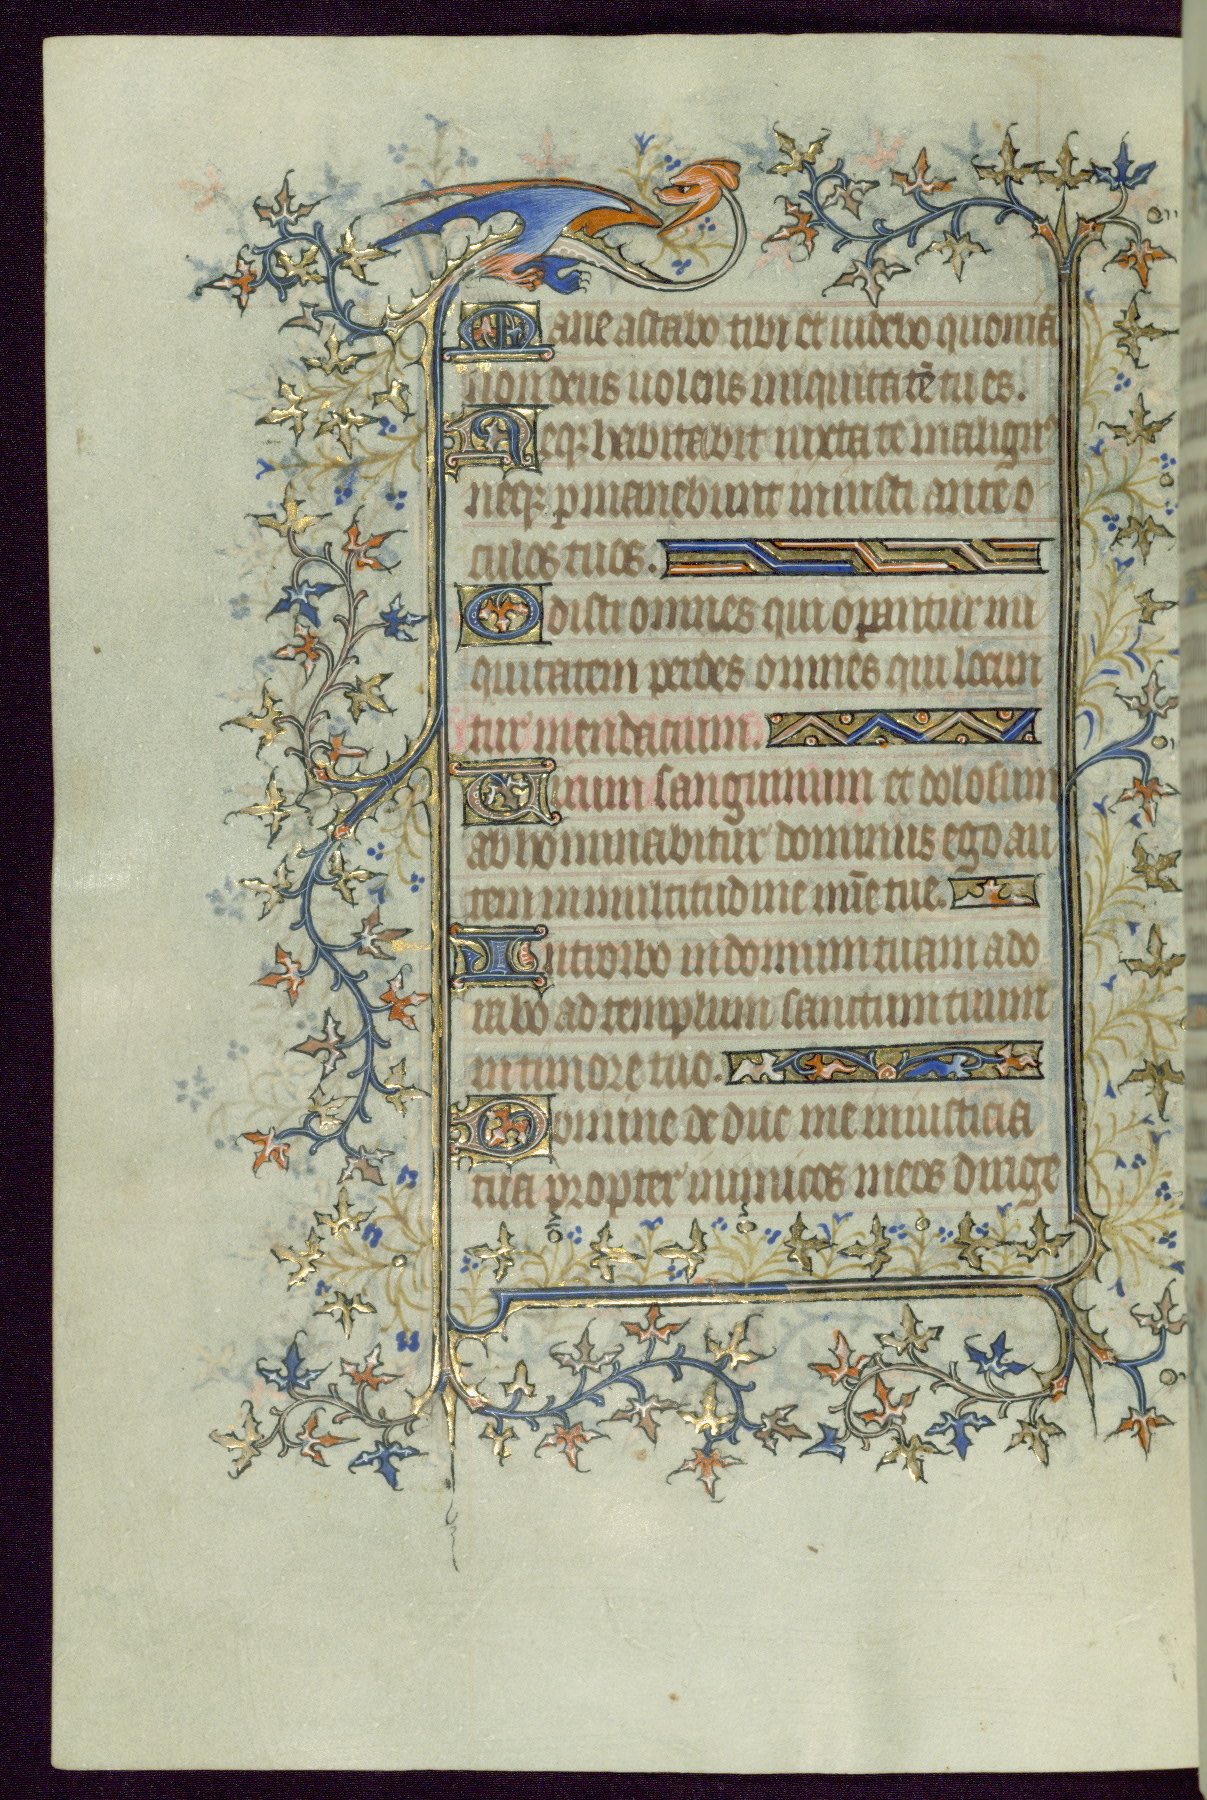 Mane astabo tibi et uidebo quoniā
non deus uolens iniquitatē tu es.
Neqꝫ habitabit iuxta te malignꝰ
neqꝫ ꝑmanebunt iniusti ante o
culos tuos.
Odisti omnes qui operantur ini
quitatem perdes omnes qui locun
tur mendacium.
Uirum sanguinum et dolosum
abhominabitur dominus ego au
tem in multitudine mīe tue.
Introibo in domum tuam ado
rabo ad templum sanctum tuum
in timore tuo.
Domine deduc me in iusticia
tua propter inimicos meos dirige